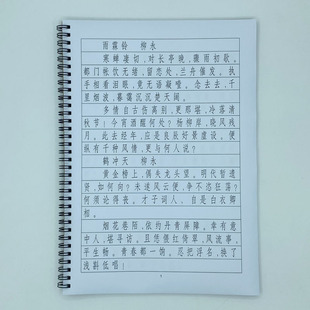 雨霖铃 柳永
寒蝉凄切，对长亭晚，骤雨初歇。
都门帐饮无绪，留恋处，兰舟催发。执
手相看泪眼，竟无语凝噎。念去去，千
里烟波，暮霭沉沉楚天阔。
多情自古伤离别，更那堪，冷落清
秋节！今宵酒醒何处？杨柳岸，晓风残
月。此去经年，应是良辰好景虚设。便
纵有千种风情，更与何人说？
鹤冲天 柳永
黄金榜上，偶失龙头望。明代暂遗
贤，如何向？未遂风云便，争不恣狂荡？
何须论得丧。才子词人，自是白衣卿
相。
烟花巷陌，依约丹青屏障。幸有意
中人，堪寻访。且恁偎红倚翠，风流事，
平生畅。青春都一饷。忍把浮名，换了
浅斟低唱！